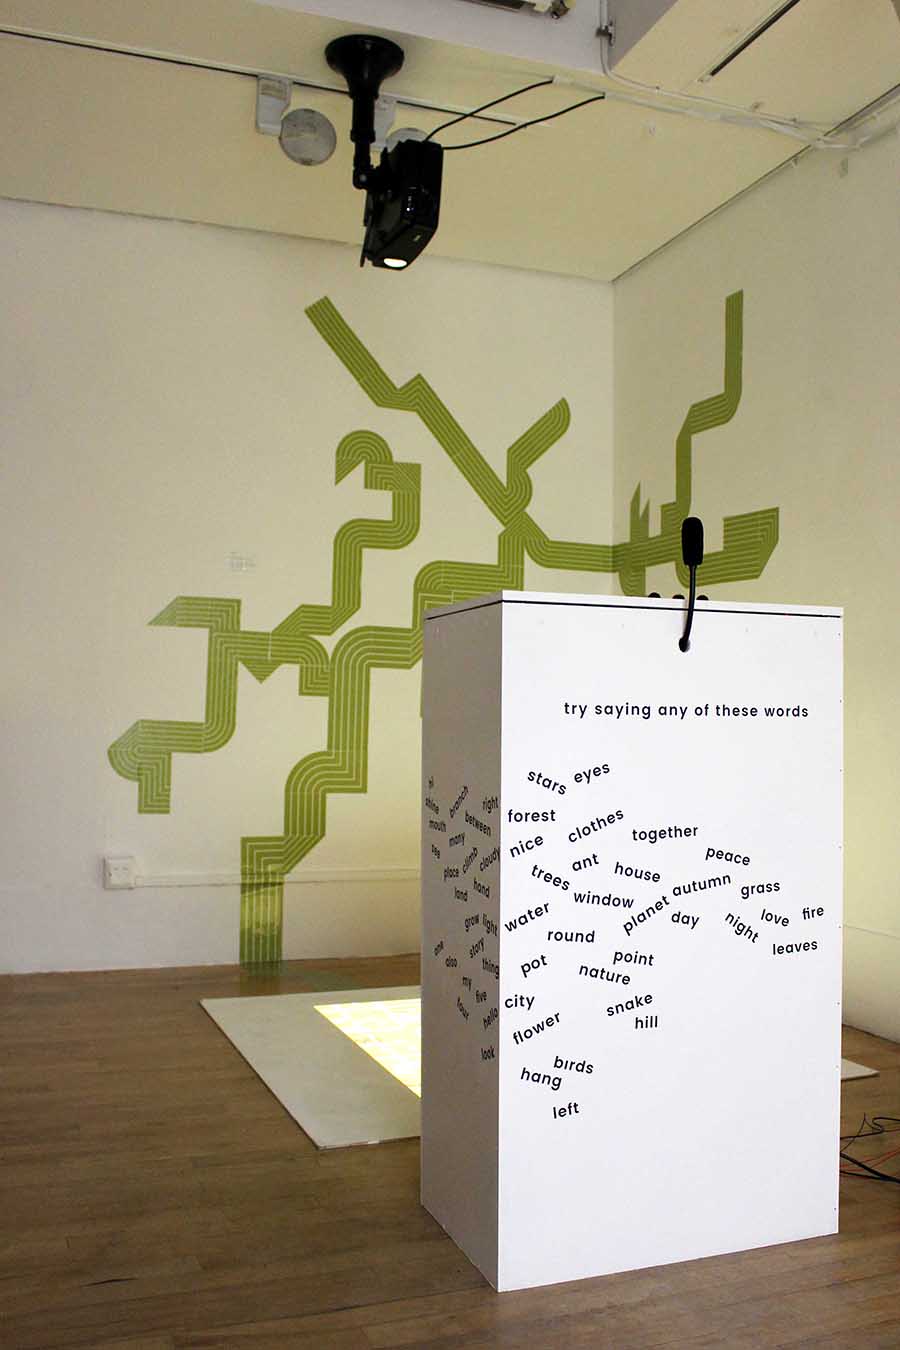 try saying any of these words
stars eyes
forest
nice clothes together
peace
ant house
trees autumn grass
window planet
water day night love fire
round leaves
pot point
nature
city snake
flower hill
birds
hang
left
branch right
shine
mouth between
many
see climb cloudy
place
land hand
grow light
one story
also thing
my five
four hello
look